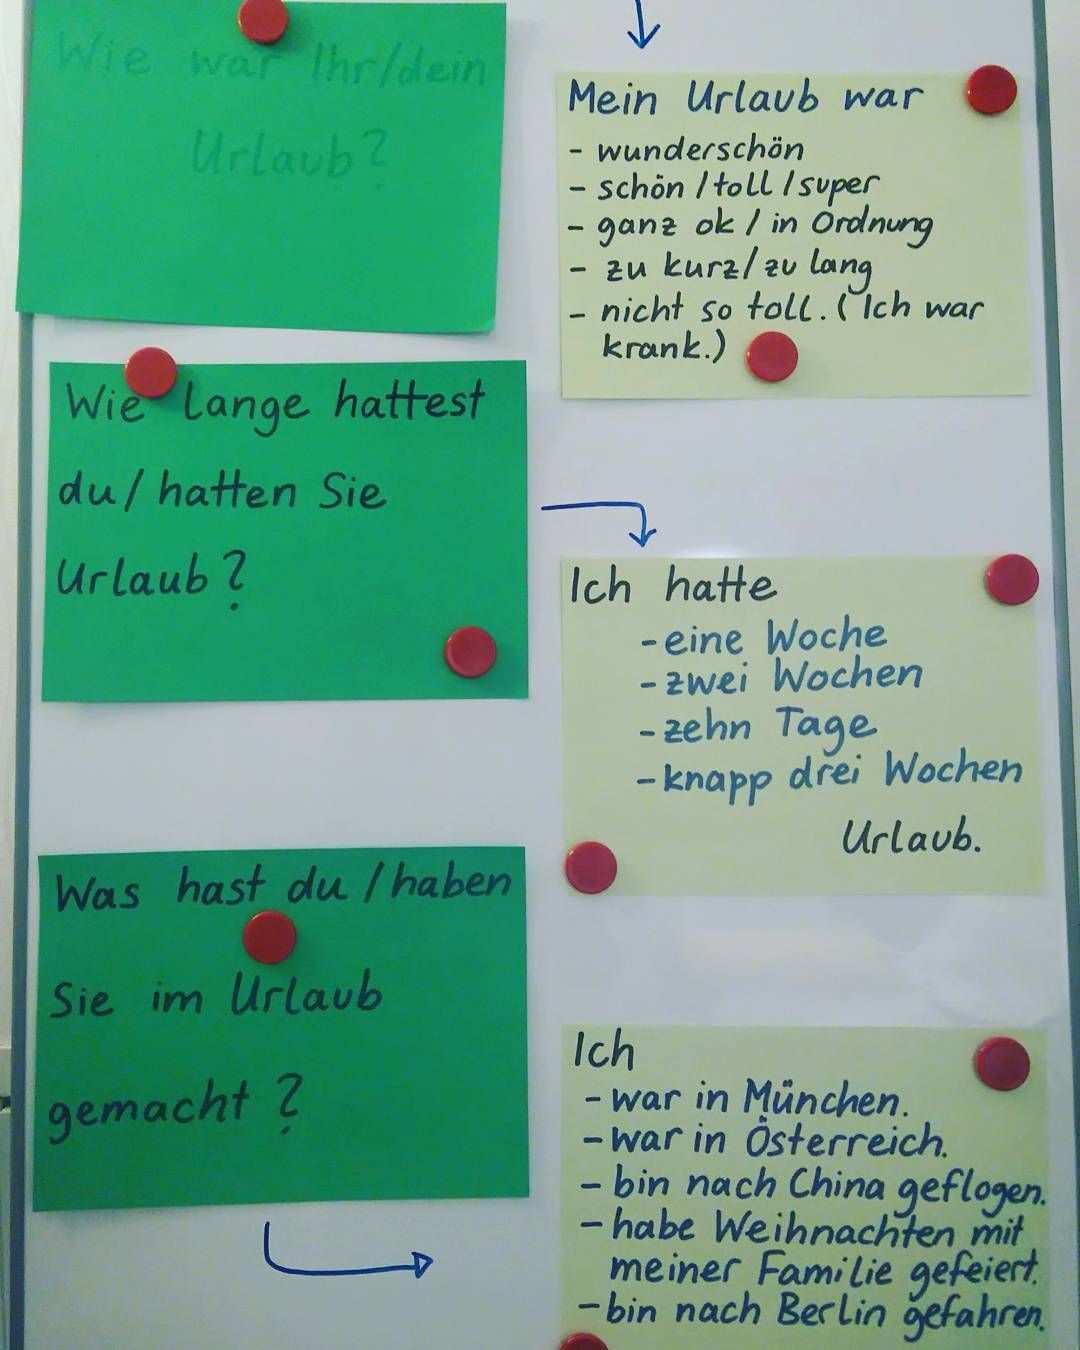 Wie war Ihr/dein
Urlaub?
Mein Urlaub war
- wunderschön
- schön / toll / super
- ganz ok / in Ordnung
- zu kurz / zu lang
- nicht so toll. ( Ich war
krank.)
Wie lange hattest
du / hatten Sie
Urlaub?
Ich hatte
- eine Woche
- zwei Wochen
- zehn Tage
- knapp drei Wochen
Urlaub.
Was hast du / haben
Sie im Urlaub
gemacht?
Ich
- war in München.
- war in Österreich.
- bin nach China geflogen.
- habe Weihnachten mit
meiner Familie gefeiert.
- bin nach Berlin gefahren.